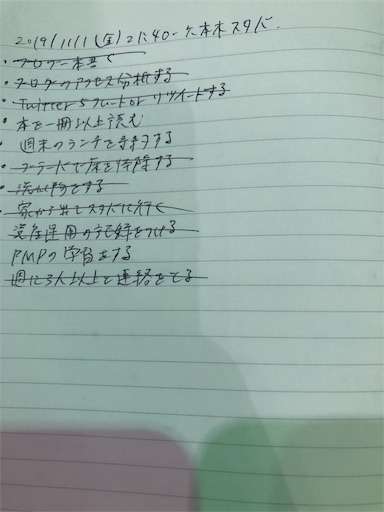 2019/11/1(金)21:40- 六本木スタバ
・ブログ一本書く
・ブログのアクセス分析する
・Twitter 5ツイート or リツイートする
・本を一冊以上読む
・週末のランチを予約する
・フードで床を掃除する
・洗い物をする
・家から出てスタバに行く
資産運用の記録をつける
PMPの学習をする
週に3人以上と連絡をとる